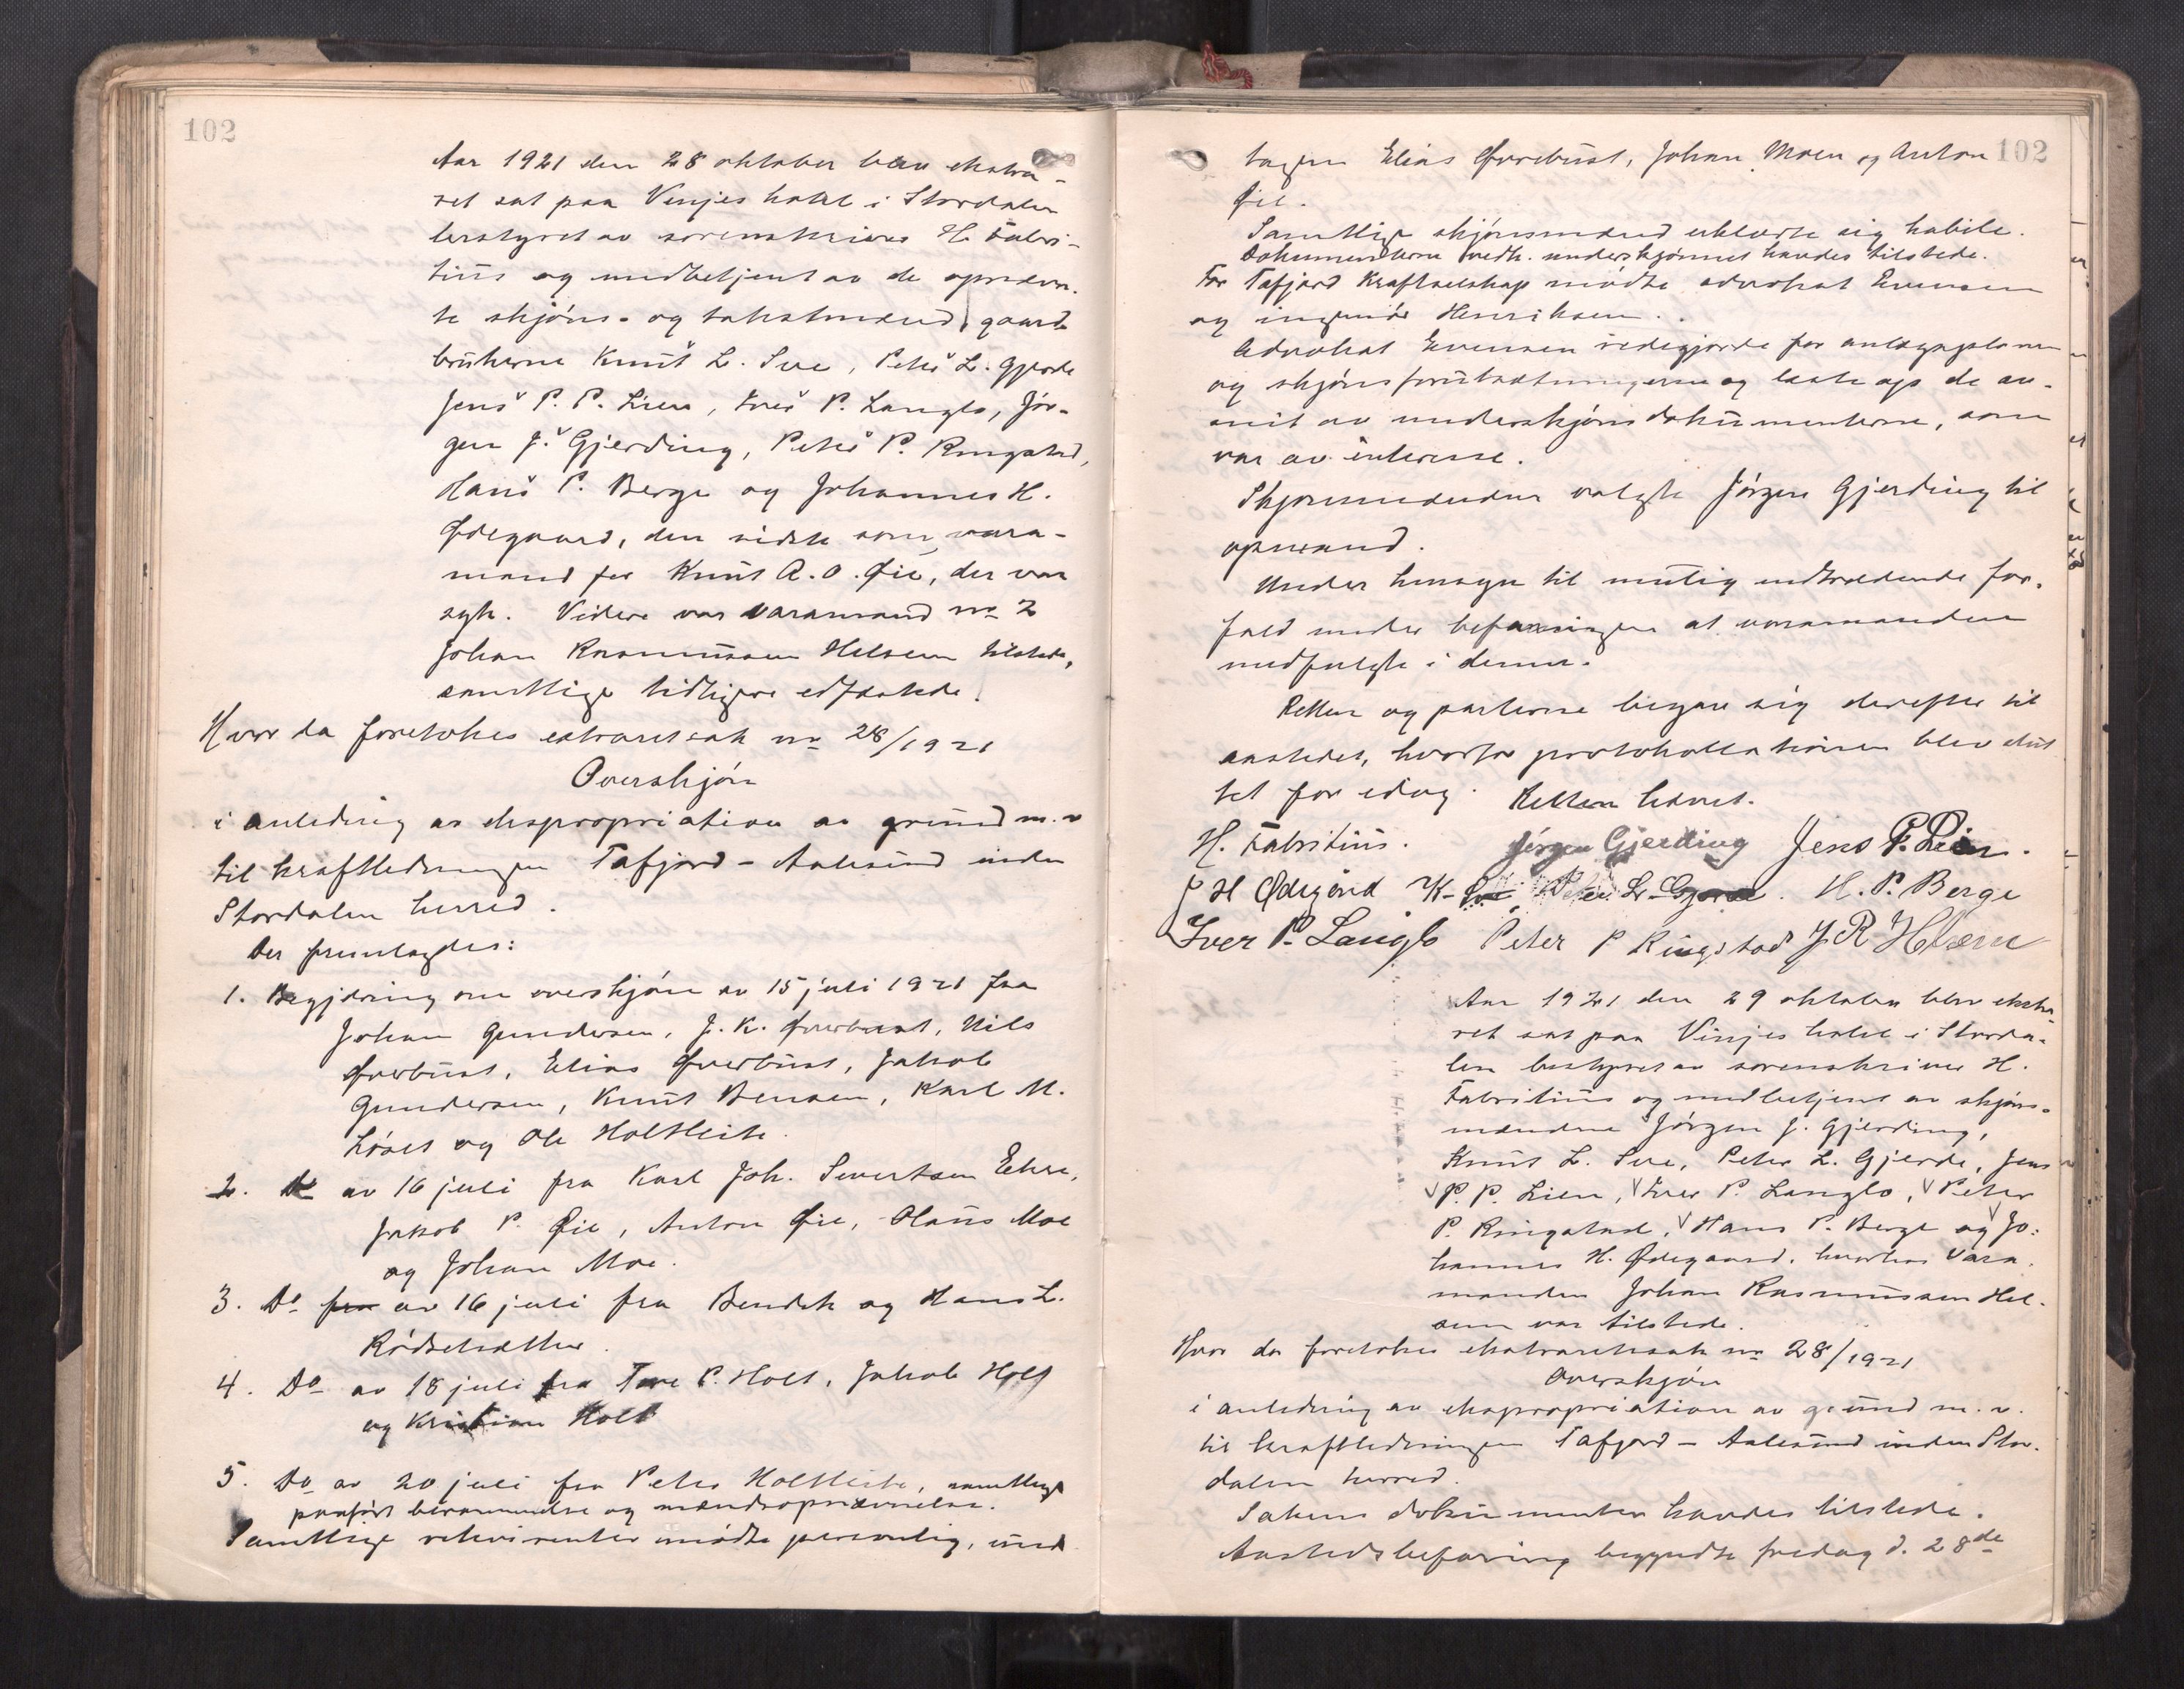 102
Aar 1921 den 28 oktober blev ekstra-
ret sat paa Vinjes hotel i Stordalen
bestyret av sorenskriver H. Fabri-
tius og medbetjent av de opnævn-
te skjøns- og takstmænd gaard-
brukerne Knut L. Sve, Peter L. Gjerde
Jens P. P. Lien, Iver P. Langlo, Jør-
gen J. Gjerding, Peter P. Ringstad,
Hans P. Berge og Johannes H.
Ødegaard, den sidste som vara-
mand for Knut A. O. Øie, der var
syk. Videre var varamand no 2
Johan Rasmussen Helsem tilstede,
samtlige tidligere edfæstede.
Hvor da foretokes extraretssak no 28/1921
Overskjøn
i anledning av ekspropriation av grund m.v
til kraftledningen Tafjord - Aalesund inden
Stordalen herred.
Der fremlagdes:
1. Begjæring om overskjøn av 15 juli 1921 fra
Johan Gundersen, J. K. Øvrebust, Nils
Øvrebust, Elias Øvrebust, Jakob
Gundersen, Knut Bensen, Karl M.
Løset og Ole Holtleite.
2. Do av 16 juli fra Karl Joh. Sivertsen
Jakob P. Øie, Anton Øie, Hans Moe
og Johan Moe.
3. Do fra av 16 juli fra Bendik og Hans L.
Rødsetsætter.
4. Do av 18 juli fra P. Holt, Jakob Holt
og Kristian Holt
5. Do av 20 juli fra Peter Holtleite, samtlige
paaført berammelse og mændsopnævnelse.
Samtlige rekvirenter mødte personlig, und
102
tagen Elias Øvrebust, Johan Moen og Anton
Øie.
Samtlige skjønsmænd erklærte sig habile.
Dokumenterne vedk. underskjønnet havdes tilstede.
For Tafjord Kraftselskap mødte advokat Evensen
og ingeniør Henriksen.
Advokat Evensen redegjorde for anlægsplanen
og skjønsforutsætningerne og læste op de av-
snit av underskjønsdokumenterne, som
var av interesse.
Skjønsmændene valgte Jørgen Gjerding til
opmand.
Under hensyn til mulig indtrædende for-
fald under befaringen at varamanden
medfulgte i denne.
Retten og parterne begav sig derefter til
aastedet, hvorfor protokollationen blev slut
tet for idag. Retten hævet.
H. Fabritius. Jørgen Gjerding Jens P. Lien.
J H Ødegård K. Sve Peter L. Gjerde. H. P. Berge
Iver P. Langlo Peter P Ringstad J R Helsem
Aar 1921 den 29 oktober blev ekstra-
ret sat paa Vinjes hotel i Storda-
len bestyret av sorenskriver H.
Fabritius og medbetjent av skjøns-
mændene Jørgen J. Gjerding,
Knut L. Sve, Peter L. Gjerde, Jens
P. P. Lien, Iver P. Langlo, Peter
P. Ringstad, Hans P. Berge og Jo-
hannes H. Ødegaard, hvorhos vara-
manden Johan Rasmussen Hel-
sem var tilstede.
Hvor da foretokes ekstraretssak no 28/1921
Overskjøn
i anledning av ekspropriation av grund m. v.
til kraftledningen Tafjord - Aalesund inden Stor-
dalen herred.
Sakens dokumenter havdes tilstede.
Aastedsbefaring begyndte fredag d. 28de